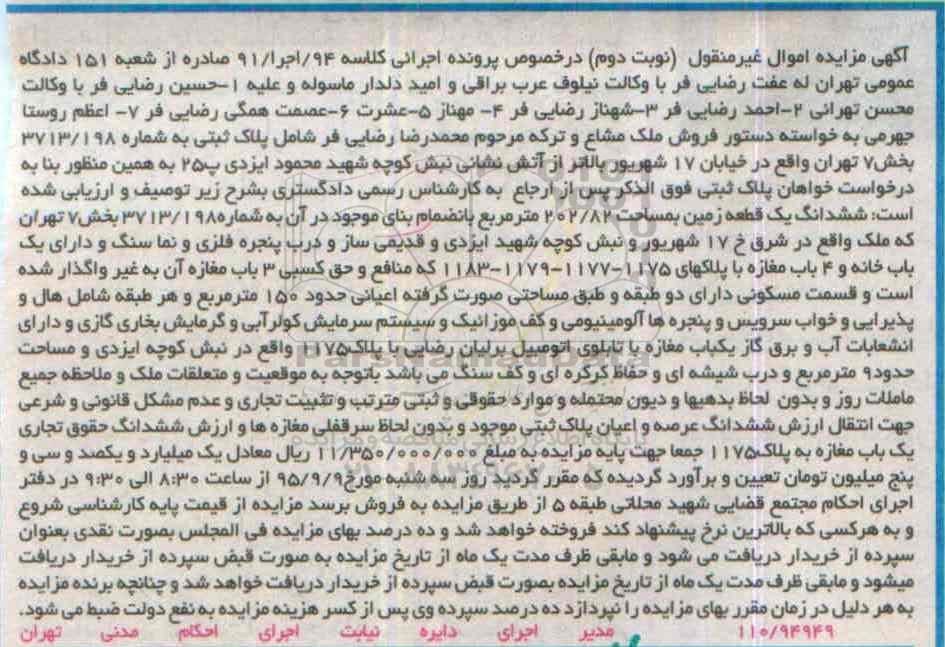 آگهی مزایده اموال غیرمنقول (نوبت دوم) درخصوص پرونده اجرائی کلاسه ۹۴/اجرا/۹۱ صادره از شعبه ۱۵۱ دادگاه
عمومی تهران له عفت رضایی فر با وکالت نیلوف عرب براقی و امید دلدار ماسوله و علیه ۱-حسین رضایی فر با وکالت
محسن تهرانی ۲-احمد رضایی فر ۳-شهناز رضایی فر ۴- مهناز ۵-عشرت ۶-عصمت همگی رضایی فر ۷- اعظم روستا
جهرمی به خواسته دستور فروش ملک مشاع و ترکه مرحوم محمدرضا رضایی فر شامل پلاک ثبتی به شماره ۳۷۱۳/۱۹۸
بخش۷ تهران واقع در خیابان ۱۷ شهریور بالاتر از آتش نشانی نبش کوچه شهید محمود ایزدی پ۲۵ به همین منظور بنا به
درخواست خواهان پلاک ثبتی فوق الذکر پس از ارجاع به کارشناس رسمی دادگستری بشرح زیر توصیف و ارزیابی شده
است: ششدانگ یک قطعه زمین بمساحت ۲۰۲/۸۲ مترمربع بانضمام بنای موجود در آن به شماره۳۷۱۳/۱۹۸ بخش۷ تهران
که ملک واقع در شرق خ ۱۷ شهریور و نبش کوچه شهید ایزدی و قدیمی ساز و درب پنجره فلزی و نما سنگ و دارای یک
باب خانه و ۴ باب مغازه با پلاکهای ۱۱۷۵-۱۱۷۷-۱۱۷۹-۱۱۸۳ که منافع و حق کسبی ۳ باب مغازه آن به غیر واگذار شده
است و قسمت مسکونی دارای دو طبقه و طبق مساحتی صورت گرفته اعیانی حدود ۱۵۰ مترمربع و هر طبقه شامل هال و
پذیرایی و خواب سرویس و پنجره ها آلومینیومی و کف موزائیک و سیستم سرمایش کولرآبی و گرمایش بخاری گازی و دارای
انشعابات آب و برق گاز یکباب مغازه با تابلوی اتومبیل برلیان رضایی با پلاک۱۱۷۵ واقع در نبش کوچه ایزدی و مساحت
حدود۹ مترمربع و درب شیشه ای و حفاظ کرکره ای و کف سنگ می باشد باتوجه به موقعیت و متعلقات ملک و ملاحظه جمیع
ماملات روز و بدون لحاظ بدهیها و دیون محتمله و موارد حقوقی و ثبتی مترتب و تثبیت تجاری و عدم مشکل قانونی و شرعی
جهت انتقال ارزش ششدانگ عرصه و اعیان پلاک ثبتی موجود و بدون لحاظ سرقفلی مغازه ها و ارزش ششدانگ حقوق تجاری
یک باب مغازه به پلاک۱۱۷۵ جمعا جهت پایه مزایده به مبلغ ۱۱/۳۵۰/۰۰۰/۰۰۰ ریال معادل یک میلیارد و یکصد و سی و
پنج میلیون تومان تعیین و برآورد گردیده که مقرر گردید روز سه شنبه مورخ۹۵/۹/۹ از ساعت ۸:۳۰ الی ۹:۳۰ در دفتر
اجرای احکام مجتمع قضایی شهید محلاتی طبقه ۵ از طریق مزایده به فروش برسد مزایده از قیمت پایه کارشناسی شروع
و به هرکسی که بالاترین نرخ پیشنهاد کند فروخته خواهد شد و ده درصد بهای مزایده فی المجلس بصورت نقدی بعنوان
سپرده از خریدار دریافت می شود و مابقی ظرف مدت یک ماه از تاریخ مزایده به صورت قبض سپرده از خریدار دریافت
میشود و مابقی ظرف مدت یک ماه از تاریخ مزایده بصورت قبض سپرده از خریدار دریافت خواهد شد و چنانچه برنده مزایده
به هر دلیل در زمان مقرر بهای مزایده را نپردازد ده درصد سپرده وی پس از کسر هزینه مزایده به نفع دولت ضبط می شود.
۱۱۰/۹۴۹۴۹ مدیر اجرای دایره نیابت اجرای احکام مدنی تهران
ParsNamadData